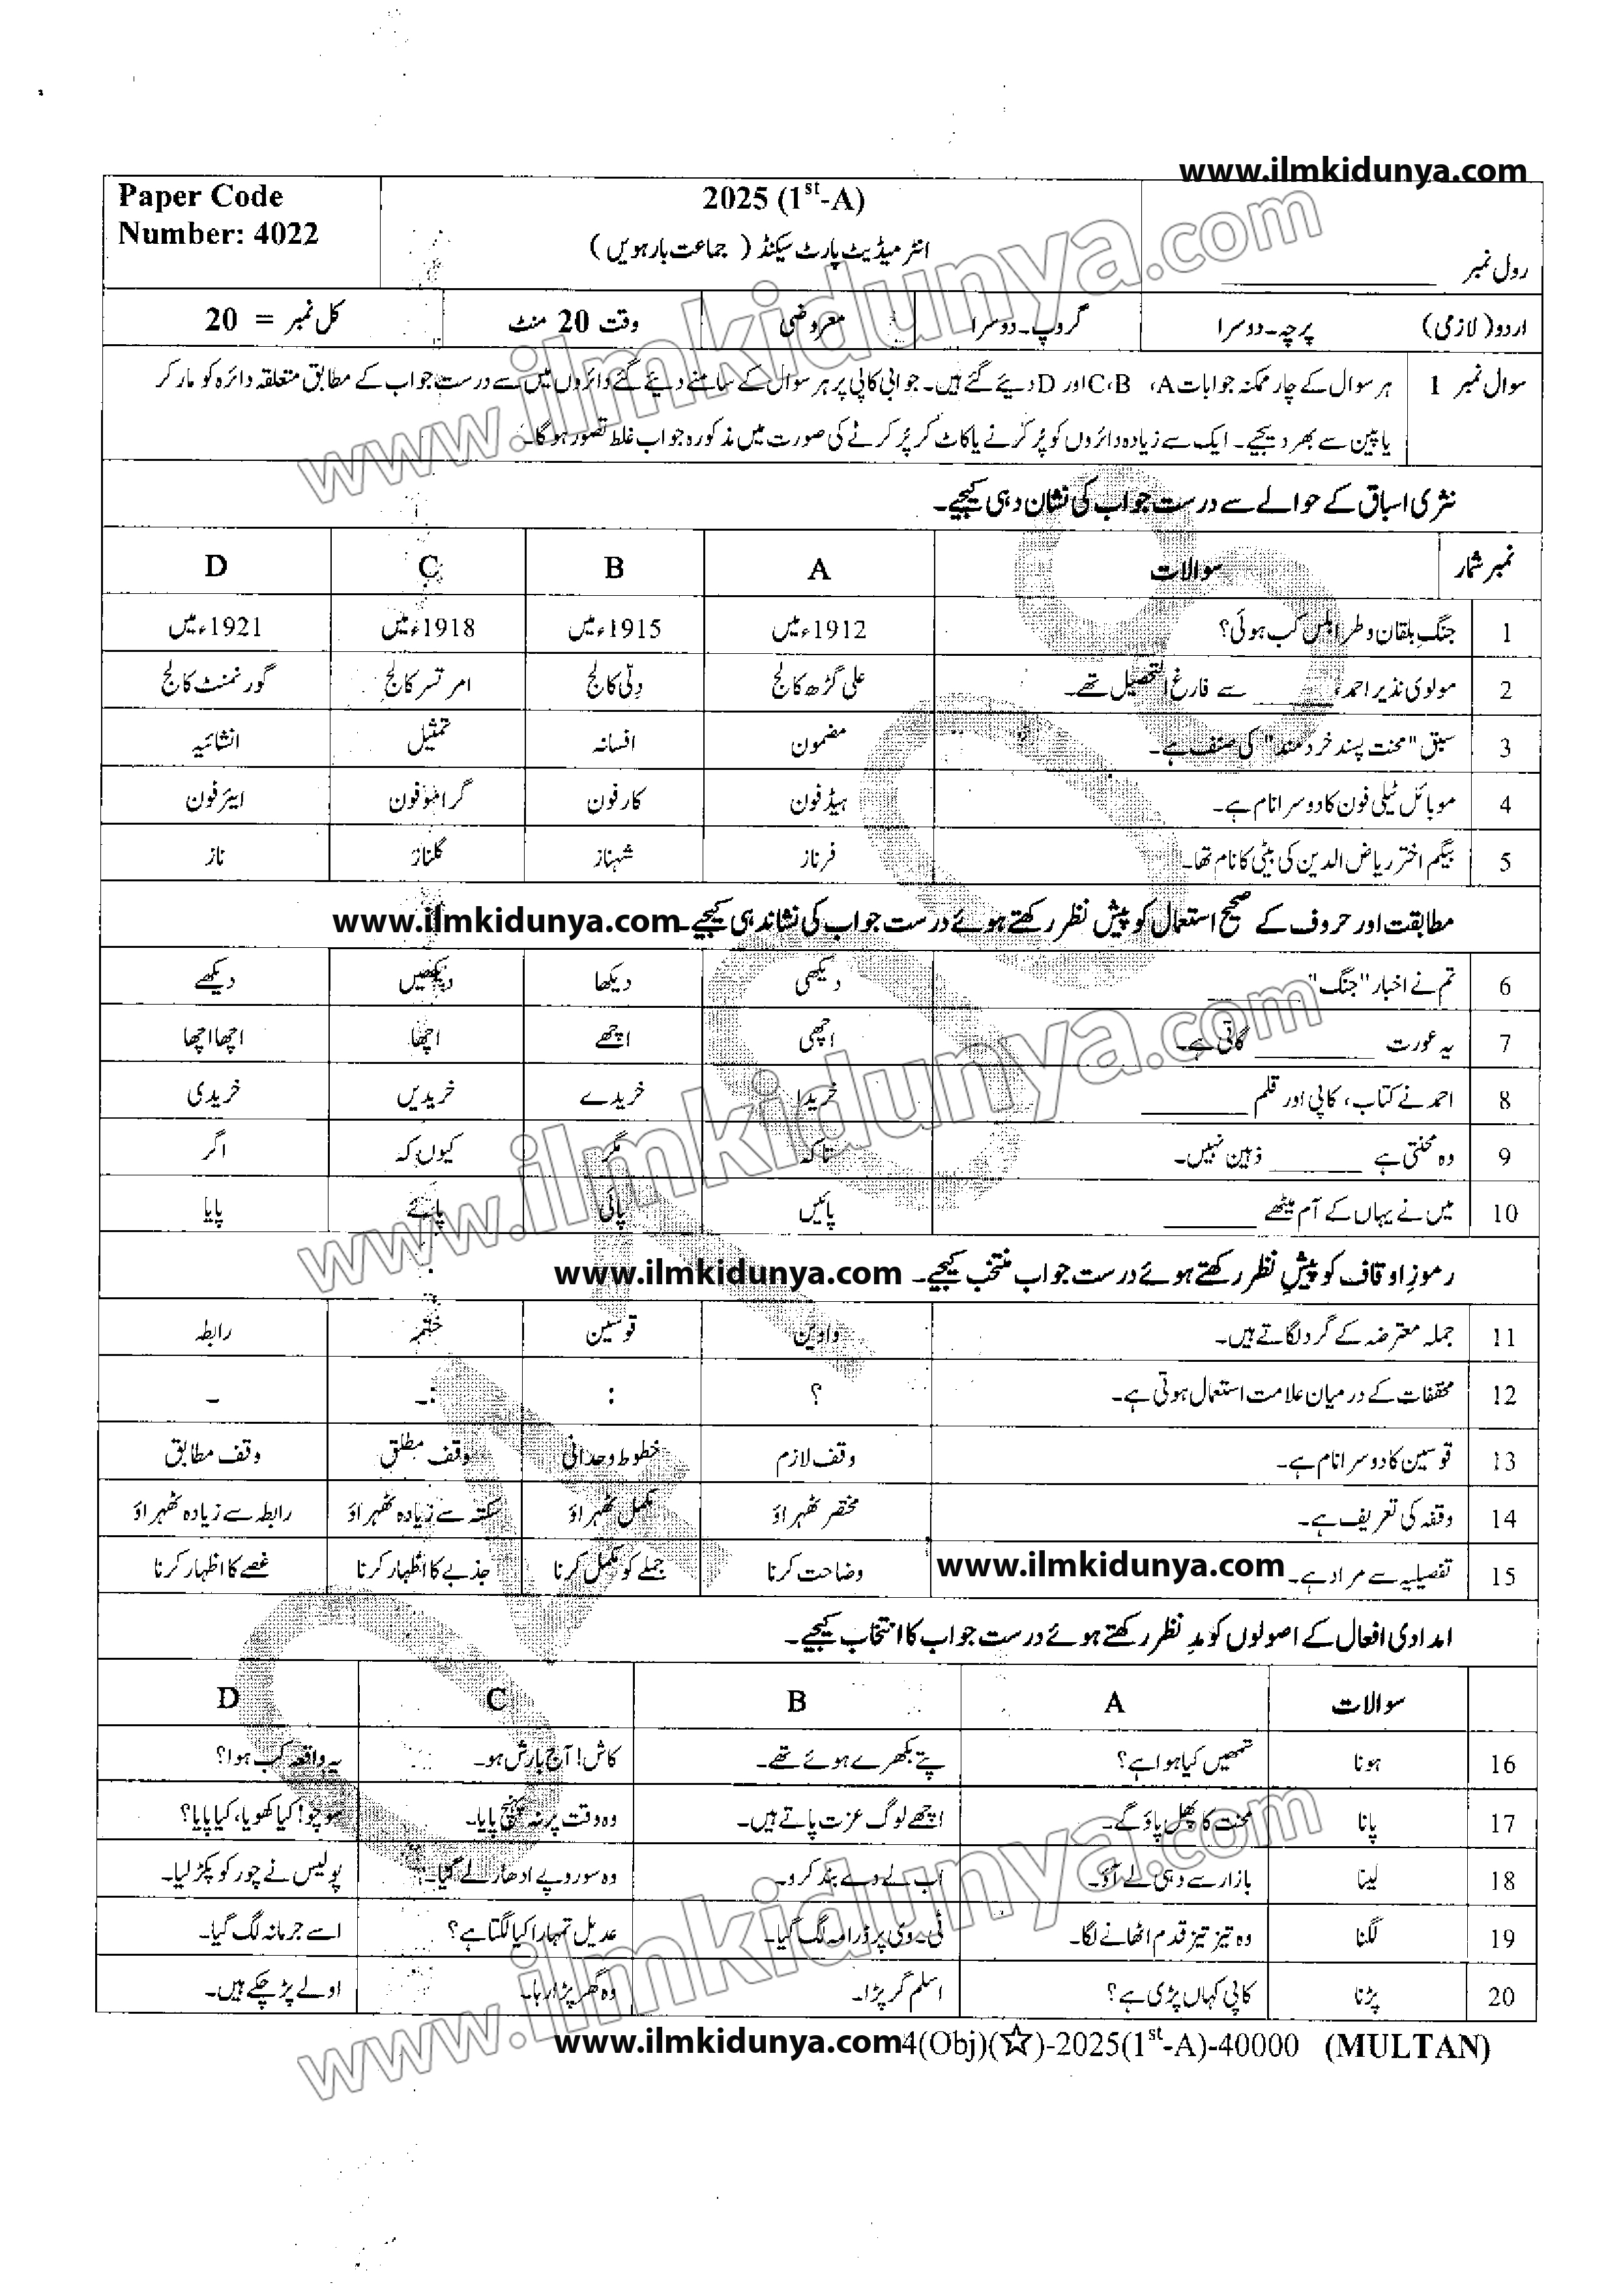 www.ilmkidunya.com
Paper Code
Number: 4022
2025 (1st-A)
انٹر میڈیٹ پارٹ سیکنڈ ( جماعت بارہویں )
رول نمبر ____________
اردو( لازمی) پرچہ۔دوسرا گروپ۔دوسرا معروضی وقت 20 منٹ کل نمبر = 20
سوال نمبر 1 ہر سوال کے چار ممکنہ جوابات A، B،C اور D دیئے گئے ہیں۔ جوابی کاپی پر ہر سوال کے سامنے دیئے گئے دائروں میں سے درست جواب کے مطابق متعلقہ دائرہ کو مارکر
یا پین سے بھر دیجیے۔ ایک سے زیادہ دائروں کو پُر کرنے یا کاٹ کر پُر کرنے کی صورت میں مذکورہ جواب غلط تصور ہو گا۔
نثری اسباق کے حوالے سے درست جواب کی نشان دہی کیجیے۔
نمبر شمار سوالات A B C D
1 جنگِ بلقان و طرابلس کب ہوئی؟ 1912ء میں 1915ء میں 1918ء میں 1921ء میں
2 مولوی نذیر احمد ________ سے فارغ التحصیل تھے۔ علی گڑھ کالج دِلّی کالج امر تسر کالج گورنمنٹ کالج
3 سبق "محنت پسند خرد مند" کی صنف ہے۔ مضمون افسانہ تمثیل انشائیہ
4 موبائل ٹیلی فون کا دوسرا نام ہے۔ ہیڈ فون کار فون گراموفون ایئر فون
5 بیگم اختر ریاض الدین کی بیٹی کا نام تھا۔ فرناز شہناز گلناز ناز
مطابقت اور حروف کے صحیح استعمال کو پیش نظر رکھتے ہوئے درست جواب کی نشاندہی کیجیے۔ www.ilmkidunya.com
6 تم نے اخبار "جنگ" ________ دیکھی دیکھا دیکھیں دیکھے
7 یہ عورت ________ گاتی ہے۔ اچھی اچھے اچھا اچھا اچھا
8 احمد نے کتاب، کاپی اور قلم ________ خریدا خریدے خریدیں خریدی
9 وہ محنتی ہے ________ ذہین نہیں۔ تاکہ مگر کیوں کہ اگر
10 میں نے یہاں کے آم میٹھے ________ پائیں پائی پائے پایا
رموزِ اوقاف کو پیشِ نظر رکھتے ہوئے درست جواب منتخب کیجیے۔ www.ilmkidunya.com
11 جملہ معترضہ کے گرد لگاتے ہیں۔ واوین قوسین ختمہ رابطہ
12 مخففات کے درمیان علامت استعمال ہوتی ہے۔ ؟ : :۔ ۔
13 قوسین کا دوسرا نام ہے۔ وقف لازم خطوط وحدانی وقف مطلق وقف مطابق
14 وقفہ کی تعریف ہے۔ مختصر ٹھہراؤ مکمل ٹھہراؤ سکتہ سے زیادہ ٹھہراؤ رابطہ سے زیادہ ٹھہراؤ
15 تفصیلیہ سے مراد ہے۔ www.ilmkidunya.com وضاحت کرنا جملے کو مکمل کرنا جذبے کا اظہار کرنا غصے کا اظہار کرنا
امدادی افعال کے اصولوں کو مدِ نظر رکھتے ہوئے درست جواب کا انتخاب کیجیے۔
سوالات A B C D
16 ہونا تمھیں کیا ہوا ہے؟ پتے بکھرے ہوئے تھے۔ کاش! آج بارش ہو۔ یہ واقعہ کب ہوا؟
17 پانا محنت کا پھل پاؤ گے۔ اچھے لوگ عزت پاتے ہیں۔ وہ وقت پر نہ پہنچ پایا۔ سوچو! کیا کھویا، کیا پایا؟
18 لینا بازار سے دہی لے آؤ۔ اب لے دے بند کرو۔ وہ سو روپے ادھار لے گیا۔ پولیس نے چور کو پکڑ لیا۔
19 لگنا وہ تیز تیز قدم اٹھانے لگا۔ ٹی۔وی پر ڈرامہ لگ گیا۔ عدیل تمہارا کیا لگتا ہے؟ اسے جرمانہ لگ گیا۔
20 پڑنا کاپی کہاں پڑی ہے؟ اسلم گر پڑا۔ وہ گھر پڑا رہا۔ اولے پڑ چکے ہیں۔
www.ilmkidunya.com4(Obj)(☆)-2025(1st-A)-40000 (MULTAN)